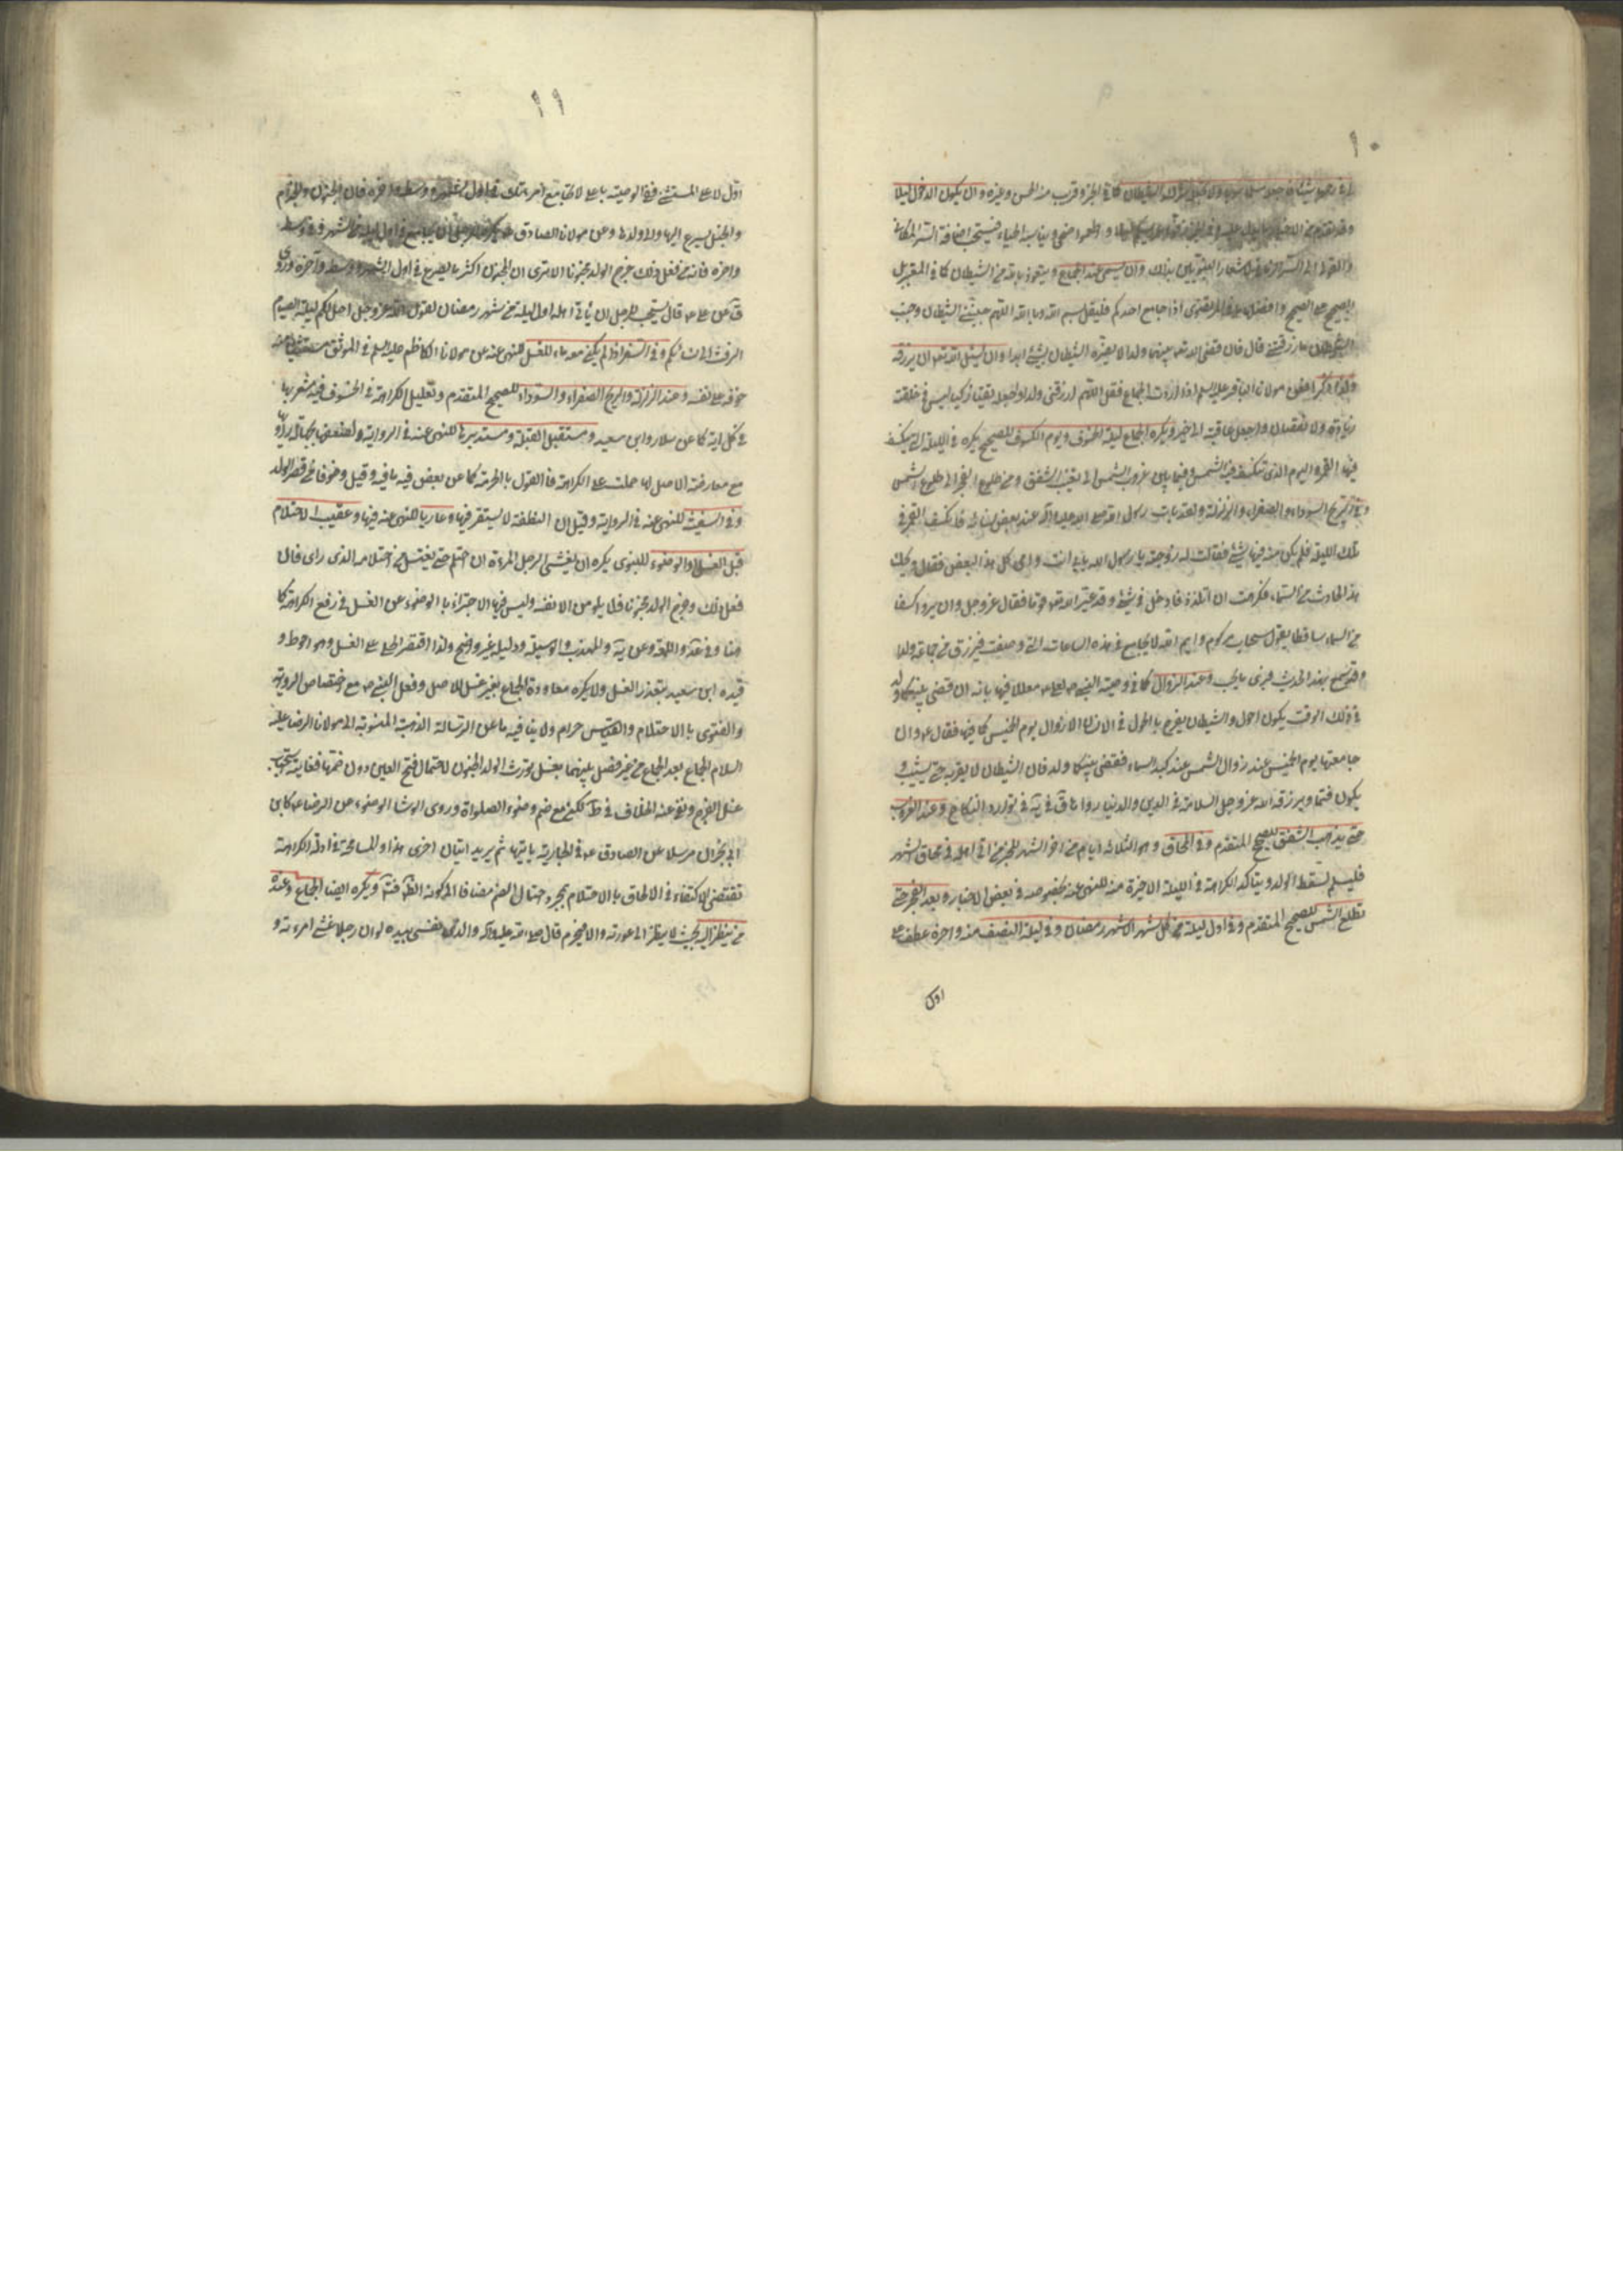 ١٠
كما في الخبر قريب منه الحسن وغيره وان يكون الدخول ليلا
فيستحب اضافة الستر المكاني
وان يسمى عند الجماع ويتعوذ بالله من الشيطان كما في
اذا جامع احدكم فليقل بسم الله وبالله اللهم جنبني الشيطان وجنب
الشيطان ما رزقتني قال فان قضى الله تعالى بينهما ولدا لا يضره الشيطان بشئ ابدا وان يسئل الله تعالى ان يرزقه
مولانا الباقر عليه السلام اذا اردت الجماع فقل اللهم ارزقني ولدا واجعله تقيا زكيا ليس في خلقته
زيادة ولا نقصان واجعل عاقبته الى خير ويكره الجماع ليلة الخسوف ويوم الكسوف للصحيح يكره في الليلة التي ينكسف
فيها القمر واليوم الذي تنكسف فيه الشمس وفيما بين غروب الشمس الى مغيب الشفق ومن طلوع الفجر الى طلوع الشمس
وفي الريح السوداء والصفراء والزلزلة ولقد بات رسول الله صلى الله عليه واله عند بعض نسائه فانكسف القمر في
تلك الليلة فلم يكن منه فيها شئ فقالت له زوجته يا رسول الله بابي انت وامي كل هذا البغض فقال ويحك
هذا الحادث من السماء فكرهت ان اتلذذ فادخل في شئ وقد عير الله تعالى قوما فقال عز وجل وان يروا كسفا
من السماء ساقطا يقولوا سحاب مركوم وايم الله لا يجامع في هذه الساعات التي وصفت فيرزق من جماعه ولدا
وقد سمع بهذا الحديث فيرى ما يحب وعند الزوال كما في وصية النبي ص لعلي ع معللا فيها بانه ان قضى بينكما ولد
في ذلك الوقت يكون احول والشيطان يفرح بالحول في الانسان الا زوال يوم الخميس كما فيها فقال ع وان
جامعتها يوم الخميس عند زوال الشمس عند كبد السماء فقضى بينكما ولد فان الشيطان لا يقربه حتى يشيب و
يكون فهما ويرزقه الله عز وجل السلامة في الدين والدنيا وعند الغروب
حتى يذهب الشفق للصحيح المتقدم وفي المحاق وهو الثلاثة ايام من اخر الشهر للخبر من اتى اهله في محاق الشهر
فليسلم لسقط الولد ويتاكد الكراهة في الليلة الاخيرة منه للنهي عنه بخصوصه في بعض الاخبار وبعد الفجر حتى
تطلع الشمس للصحيح المتقدم وفي اول ليلة من كل شهر الا شهر رمضان وفي ليلة النصف منه واخره عطف على
اول
١١
اول لا على المستثنى ففي الوصية يا علي لا تجامع امراتك في اول الشهر ووسطه واخره فان الجنون والجذام
والخبل يسرع اليها والى ولدها وعن مولانا الصادق ع يكره للرجل ان يجامع في اول ليلة من الشهر وفي وسطه
واخره فانه من فعل ذلك خرج الولد مجنونا الا ترى ان المجنون اكثر ما يصرع في اول الشهر ووسطه واخره وروى
ق عن علي ع قال يستحب للرجل ان ياتي اهله اول ليلة من شهر رمضان لقول الله عز وجل احل لكم ليلة الصيام
الرفث الى نسائكم وفي السفر اذا لم يكن معه ماء للغسل للنهي عنه عن مولانا الكاظم عليه السلم في الموثق
خوفه على نفسه وعند الزلزلة والريح الصفراء والسوداء للصحيح المتقدم وتعليل الكراهة في الخسوف فيه مشعر بها
في كل اية كما عن سلار وابن سعيد ومستقبل القبلة ومستدبرها للنهي عنه في الرواية
مع معارضة الاصل لها حملت على الكراهة فالقول بالحرمة كما عن بعض فيه ما فيه وقيل وخوفا من قصر الولد
وفي السفينة للنهي عنه في الرواية وقيل ان النطفة لا تستقر فيها وعاريا للنهي عنه فيها وعقيب الاحتلام
قبل الغسل او الوضوء للنبوي يكره ان يغشى الرجل المراة ان احتلم حتى يغتسل من احتلامه الذي راى فان
فعل ذلك وخرج الولد مجنونا فلا يلومن الا نفسه وليس فيها الاجتزاء بالوضوء عن الغسل في رفع الكراهة كما
هنا وفي عد واللمعة وعن ية والمهذب والوسيلة ودليله غير واضح ولذا اقتصر الحلي على الغسل وهو احوط و
قيده ابن سعيد بتعذر الغسل ولا يكره معاودة الجماع بغير غسل للاصل وفعل النبي ص مع اختصاص الرواية
والفتوى بالاحتلام والقياس حرام ولا ينافيه ما عن الرسالة الذهبية المنسوبة الى مولانا الرضا عليه
السلام الجماع بعد الجماع من غير فصل بينهما بغسل يورث الولد الجنون لاحتمال فتح الغين دون ضمها فغايته استحباب
غسل الفرج ونفى عنه الخلاف في ط لكن مع ضم وضوء الصلواة وروى الوشا الوضوء عن الرضا ع كابن
ابي نجران مرسلا عن الصادق ع في الجارية ياتيها ثم يريد اتيان اخرى هذا والمسامحة في ادلة الكراهة
تقتضي الاكتفاء في الالحاق بالاحتلام بمجرد احتمال الضم مضافا الى كونه انظف فت ويكره ايضا الجماع وعنده
من ينظر اليه بحيث لا ينظر الى عورته والا فيحرم قال صلى الله عليه وآله والذي نفسي بيده لو ان رجلا غشى امراته و